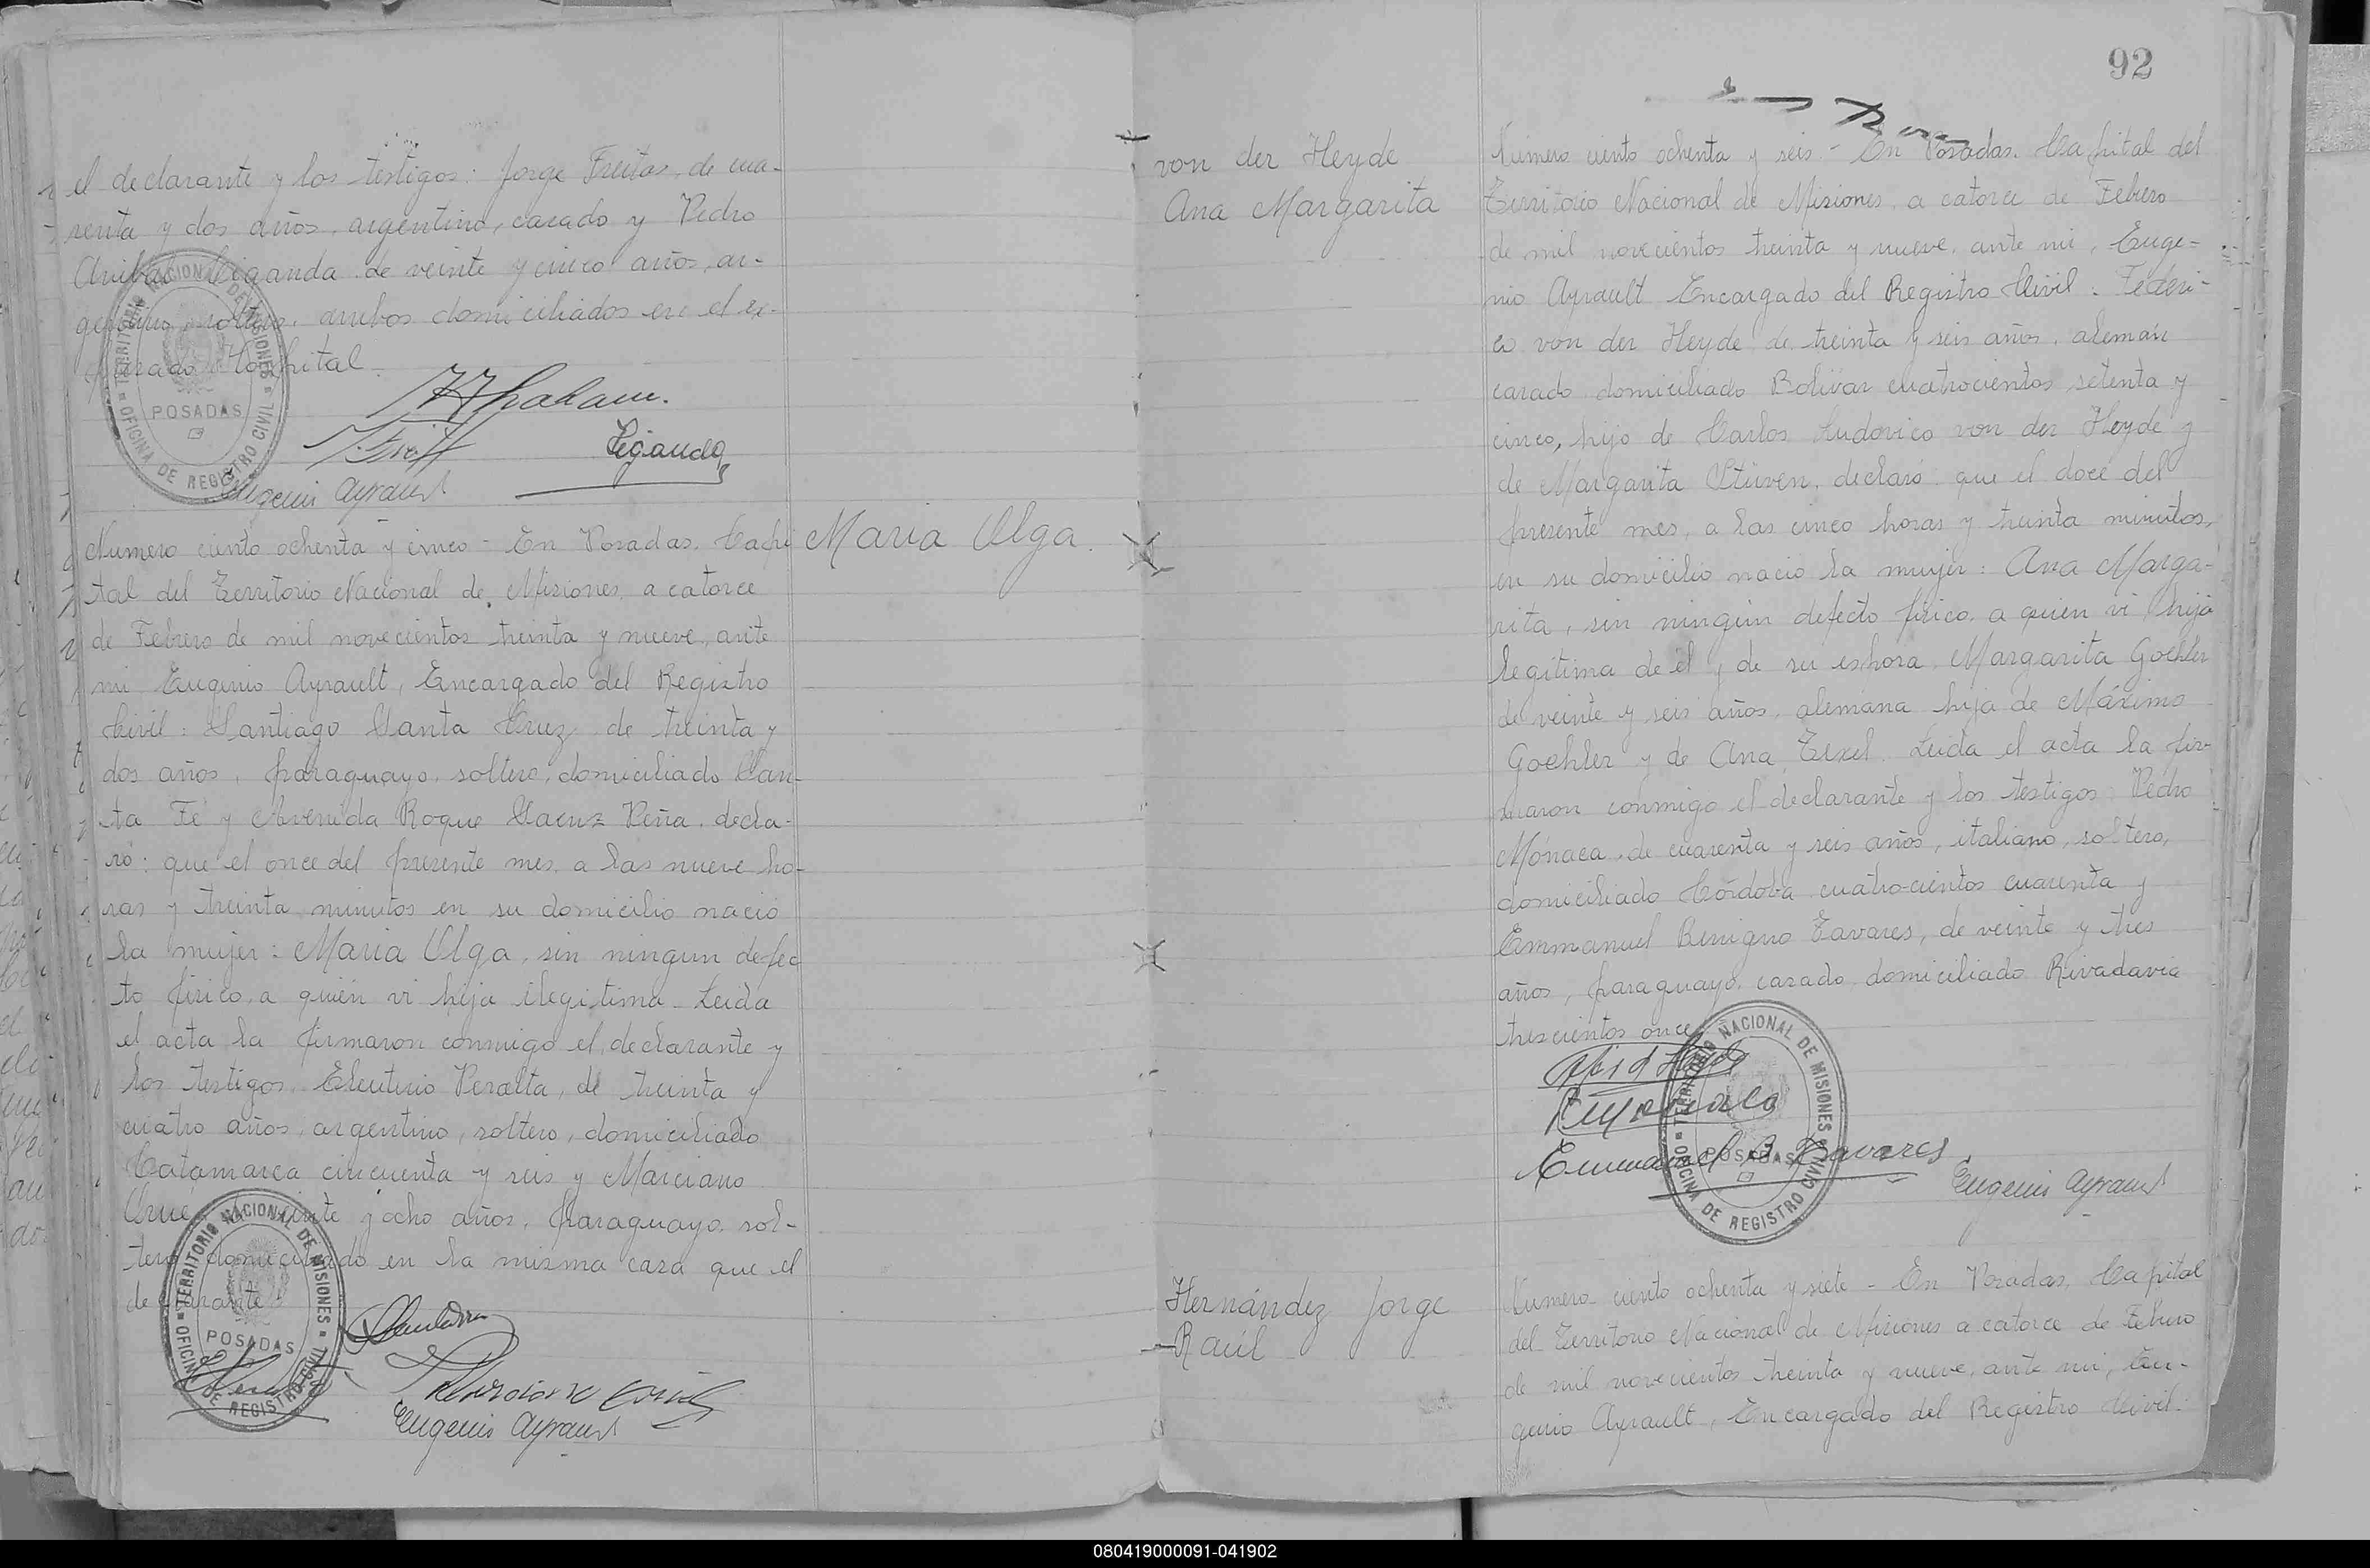 el declarante y los testigos: Jorge Freitas, de cua-
renta y dos años, argentino, casado y Pedro
Anibal Liganda de veinte y cinco años, ar-
gentino, soltero, ambos domiciliados en el ex-
presado Hospital.
Eugenio Ayrault
Numero ciento ochenta y cinco - En Posadas, Capi
tal del Territorio Nacional de Misiones, a catorce
de Febrero de mil novecientos treinta y nueve, ante
mi, Eugenio Ayrault, Encargado del Registro
Civil: Santiago Santa Cruz, de treinta y
dos años, paraguayo, soltero, domiciliado San-
ta Fé y Avenida Roque Saenz Peña, decla-
ró: que el once del presente mes, a las nueve ho-
ras y treinta minutos en su domicilio nació
la mujer: Maria Olga, sin ningun defec
to fisico, a quien vi hija ilegitima - Leida
el acta la firmaron conmigo el declarante y
los testigos Eleuterio Peralta, de treinta y
cuatro años, argentino, soltero, domiciliado
Catamarca cincuenta y seis y Marciano
veinte y ocho años, paraguayo, sol-
tero, domiciliado en la misma casa que el
declarante
Eugenio Ayrault
Maria Olga.
TERRITORIO NACIONAL DE MISIONES
POSADAS
OFICINA DE REGISTRO CIVIL
92
von der Heyde
Ana Margarita
Número ciento ochenta y seis - En Posadas, Capital del
Territorio Nacional de Misiones, a catorce de Febrero
de mil novecientos treinta y nueve, ante mi, Euge-
nio Ayrault Encargado del Registro Civil: Federi-
co von der Heyde de treinta y seis años, alemán
casado domiciliado Bolívar cuatrocientos setenta y
cinco, hijo de Carlos Ludovico von der Heyde y
de Margarita Stüven, declaró: que el doce del
presente mes, a las cinco horas y treinta minutos,
en su domicilio nació la mujer: Ana Marga-
rita, sin ningún defecto fisico a quien vi, hija
legitima de él y de su esposa Margarita Goehler
de veinte y seis años, alemana hija de Máximo
Goehler y de Ana Texel. Leida el acta la fir-
maron conmigo el declarante y los testigos Pedro
Mónaca, de cuarenta y seis años, italiano, soltero,
domiciliado Córdoba cuatrocientos cuarenta y
Emmanuel Benigno Tavares, de veinte y tres
años, paraguayo, casado, domiciliado Rivadavia
trescientos once
Emmanuel B. Tavares
Eugenio Ayrault
TERRITORIO NACIONAL DE MISIONES
POSADAS
OFICINA DE REGISTRO CIVIL
Hernández Jorge
Raúl
Numero ciento ochenta y siete - En Posadas, Capital
del Territorio Nacional de Misiones a catorce de Febrero
de mil novecientos treinta y nueve, ante mi, Eu-
genio Ayrault, Encargado del Registro Civil:
080419000091-041902